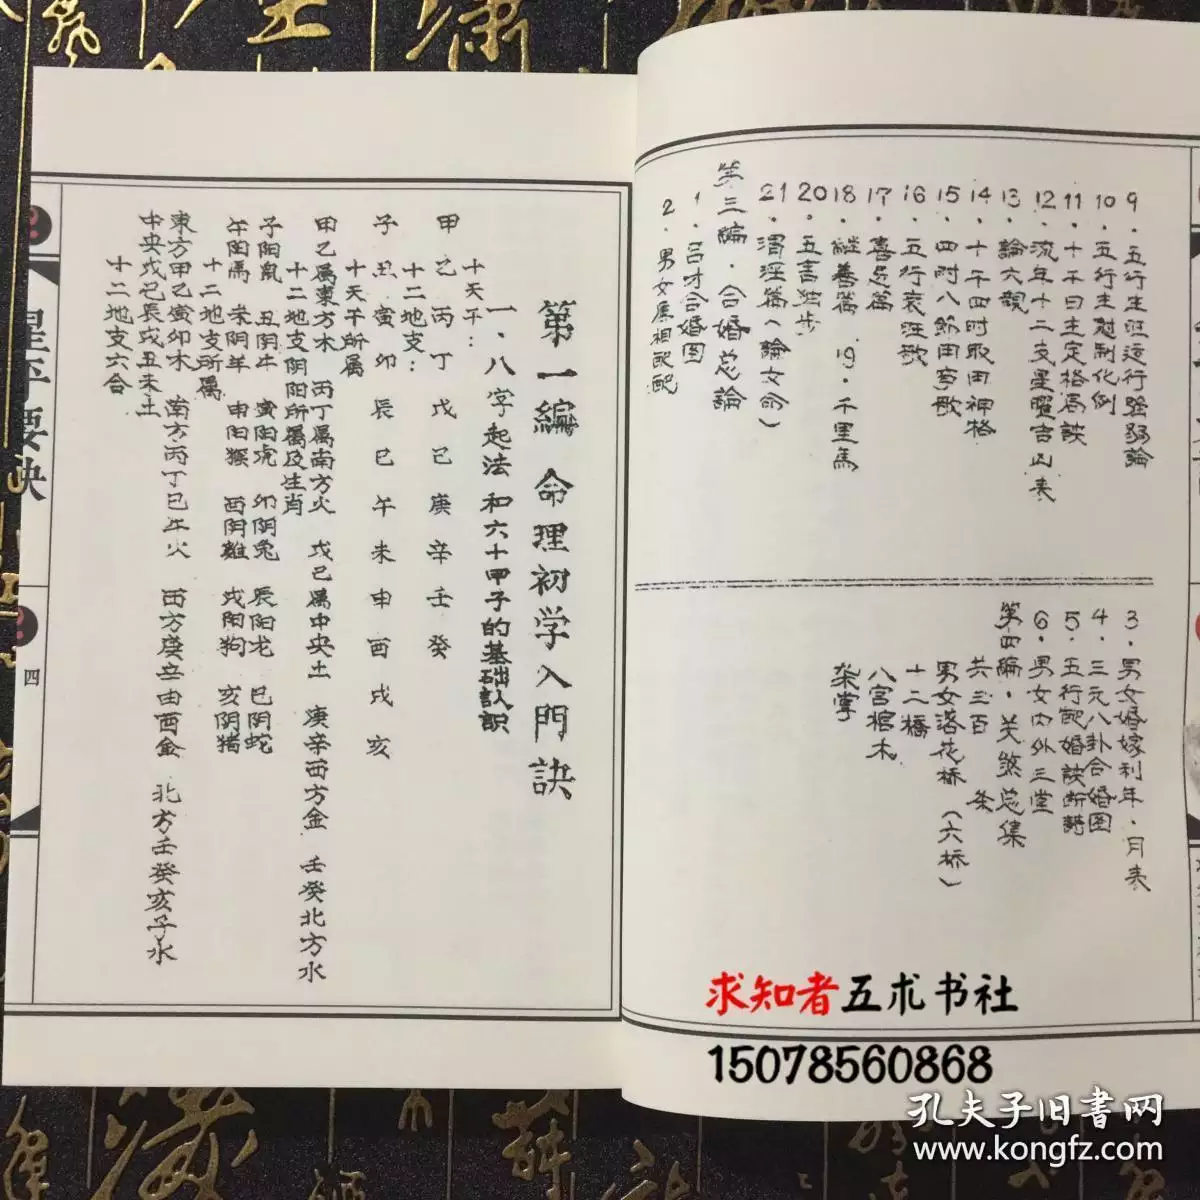 9．五行生旺运行强弱論
10．五行生尅制化例
11．十干日主定格局訣
12．流年十二支星曜吉凶表
13．論六親
14．十干四时取用神格
15．四时八節田亨歌
16．五行衰旺歌
17．喜忌篇
18．継善篇　19．千里馬
20．五言独步
21．渭泾篇（論女命）
第三編．合婚总論
1．吕才合婚图
2．男女属相配配
3．男女婚嫁利年．月表
4．三元八卦合婚图
5．五行配婚訣断語
6．男女内外三堂
第四編．关煞总集
共三百　条
男女落花桥（六桥）
十二橋
八宫棺木
第一編 命理初学入門訣
一．八字起法和六十甲子的基础认识
十天干：
甲乙丙丁戊己庚辛壬癸
十二地支：
子丑寅卯辰巳午未申酉戌亥
十天干所属
甲乙属東方木　丙丁属南方火　戊己属中央土　庚辛西方金　壬癸北方水
十二地支阴阳所属及生肖
子阳鼠　丑阴牛　寅阳虎　卯阴兔　辰阳龙　巳阴蛇
午阳馬　未阴羊　申阳猴　酉阴雞　戌阳狗　亥阴猪
十二地支所属
東方甲乙寅卯木　南方丙丁巳午火　西方庚辛申酉金　北方壬癸亥子水
中央戊己辰戌丑未土
十二地支六合
星平要诀
四
求知者五术书社
15078560868
孔夫子旧書网
www.kongfz.com